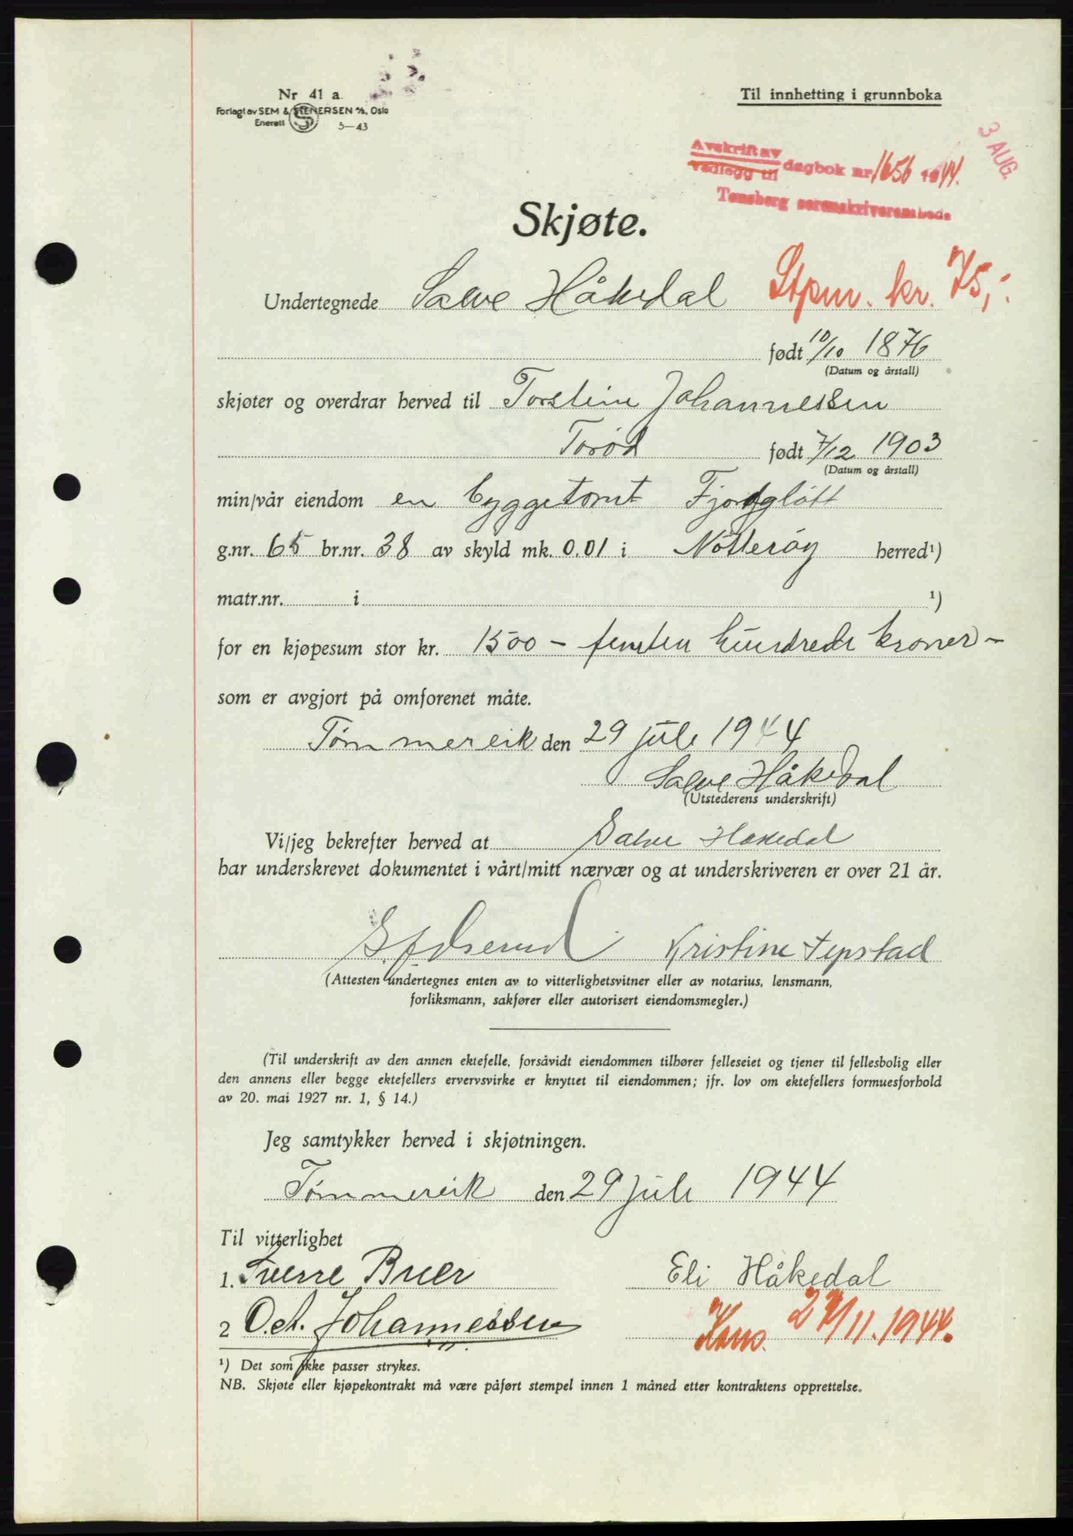 Nr 41 a
Til innhefting i grunnboka
Forlagt av SEM & STENERSEN A/S, Oslo
Enerett 5—43
3 AUG.
Avskrift av
vedlegg til dagbok nr 1656 1944.
Tønsberg sorenskriverembede
Skjøte.
Stpm. kr. 75,-
Undertegnede Salve Håkedal
født 10/10 1876
(Datum og årstall)
skjøter og overdrar herved til Torstein Johannessen
Torød født 7/12 1903
(Datum og årstall)
min/vår eiendom en byggetomt Fjordgløtt
g.nr. 65 br.nr. 38 av skyld mk. 0.01 i Nøtterøy herred¹)
matr.nr. i ¹)
for en kjøpesum stor kr. 1500 – femten hundrede kroner –
som er avgjort på omforenet måte.
Tømmereik den 29 juli 1944
Salve Håkedal
(Utstederens underskrift)
Vi/jeg bekrefter herved at Salve Håkedal
har underskrevet dokumentet i vårt/mitt nærvær og at underskriveren er over 21 år.
Kristine
(Attesten undertegnes enten av to vitterlighetsvitner eller av notarius, lensmann,
forliksmann, sakfører eller autorisert eiendomsmegler.)
(Til underskrift av den annen ektefelle, forsåvidt eiendommen tilhører felleseiet og tjener til fellesbolig eller
den annens eller begge ektefellers ervervsvirke er knyttet til eiendommen; jfr. lov om ektefellers formuesforhold
av 20. mai 1927 nr. 1, § 14.)
Jeg samtykker herved i skjøtningen.
Tømmereik den 29 juli 1944
Til vitterlighet
1. Sverre Buer Eli Håkedal
2 Oct. Johannessen
27/11.1944.
¹) Det som ikke passer strykes.
NB. Skjøte eller kjøpekontrakt må være påført stempel innen 1 måned etter kontraktens opprettelse.